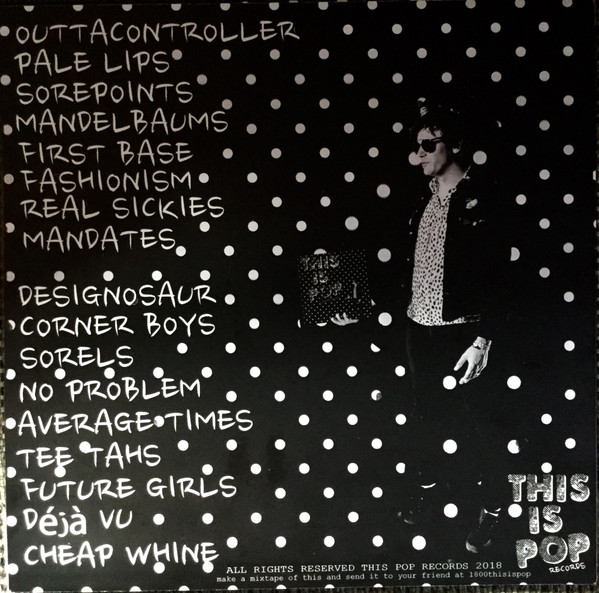 OUTTACONTROLLER
PALE LIPS
SOREPOINTS
MANDELBAUMS
FIRST BASE
FASHIONISM
REAL SICKIES
MANDATES
DESIGNOSAUR
CORNER BOYS
SORELS
NO PROBLEM
AVERAGE TIMES
TEE TAHS
FUTURE GIRLS
Déjà VU
CHEAP WHINE
THIS
IS
POP 1
THIS
IS
POP
RECORDS
ALL RIGHTS RESERVED THIS POP RECORDS 2018
make a mixtape of this and send it to your friend at 1800thisispop